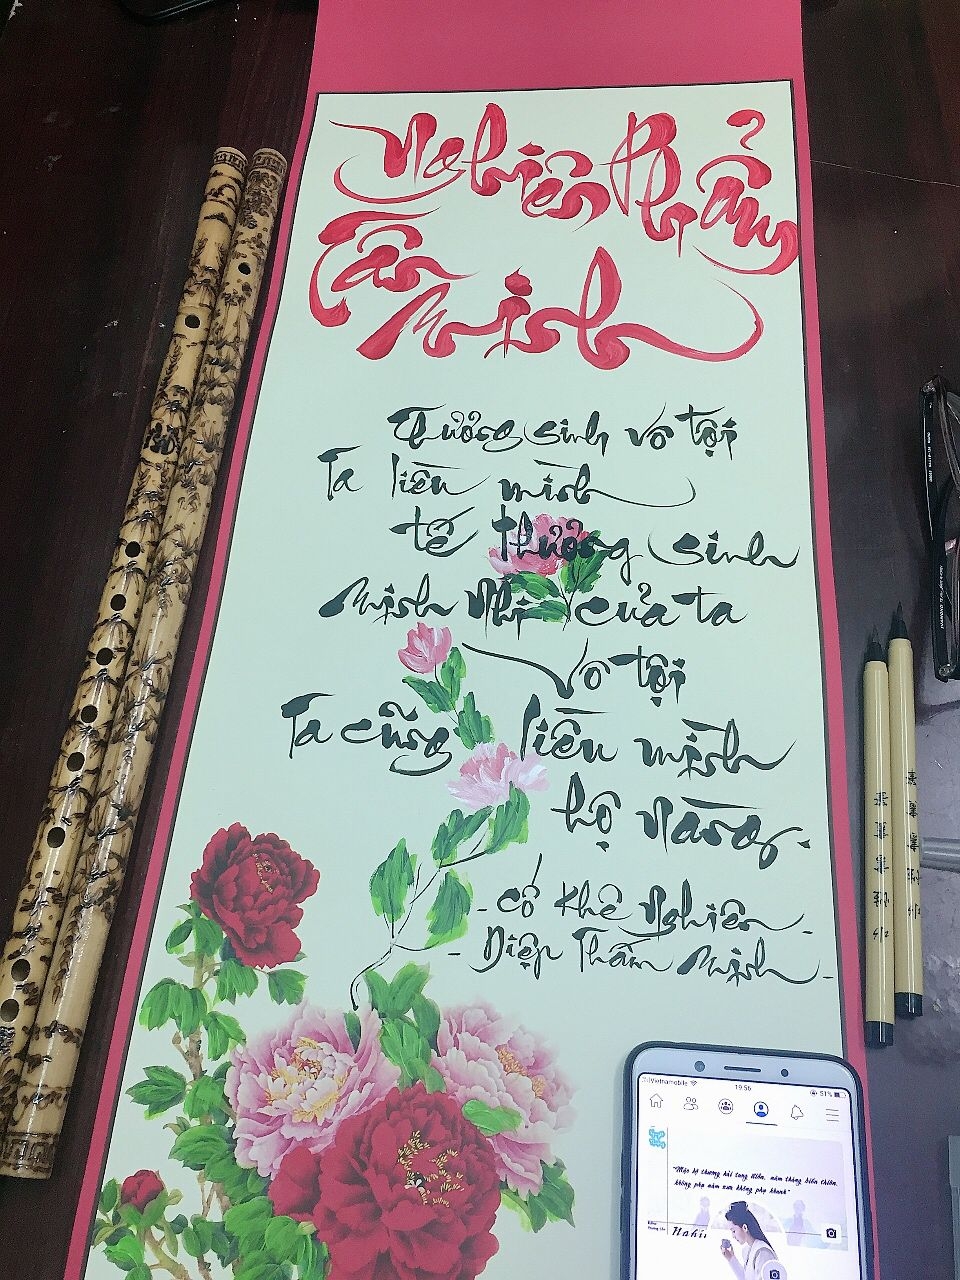 Nghiên Phẩm
Tần
Minh
Thưởng sinh vô tội
Ta liền mình
tế thưởng sinh
Minh Nhi của ta
vô tội
Ta cũng liền mình
hộ nàng.
- Cố Khê Nghiên -
- Diệp Thấm Minh -
Vietnamobile
19:56
51%
"Mặc kệ thương hải tang điền, năm tháng biến thiên,
không phụ năm xưa không phụ khanh"